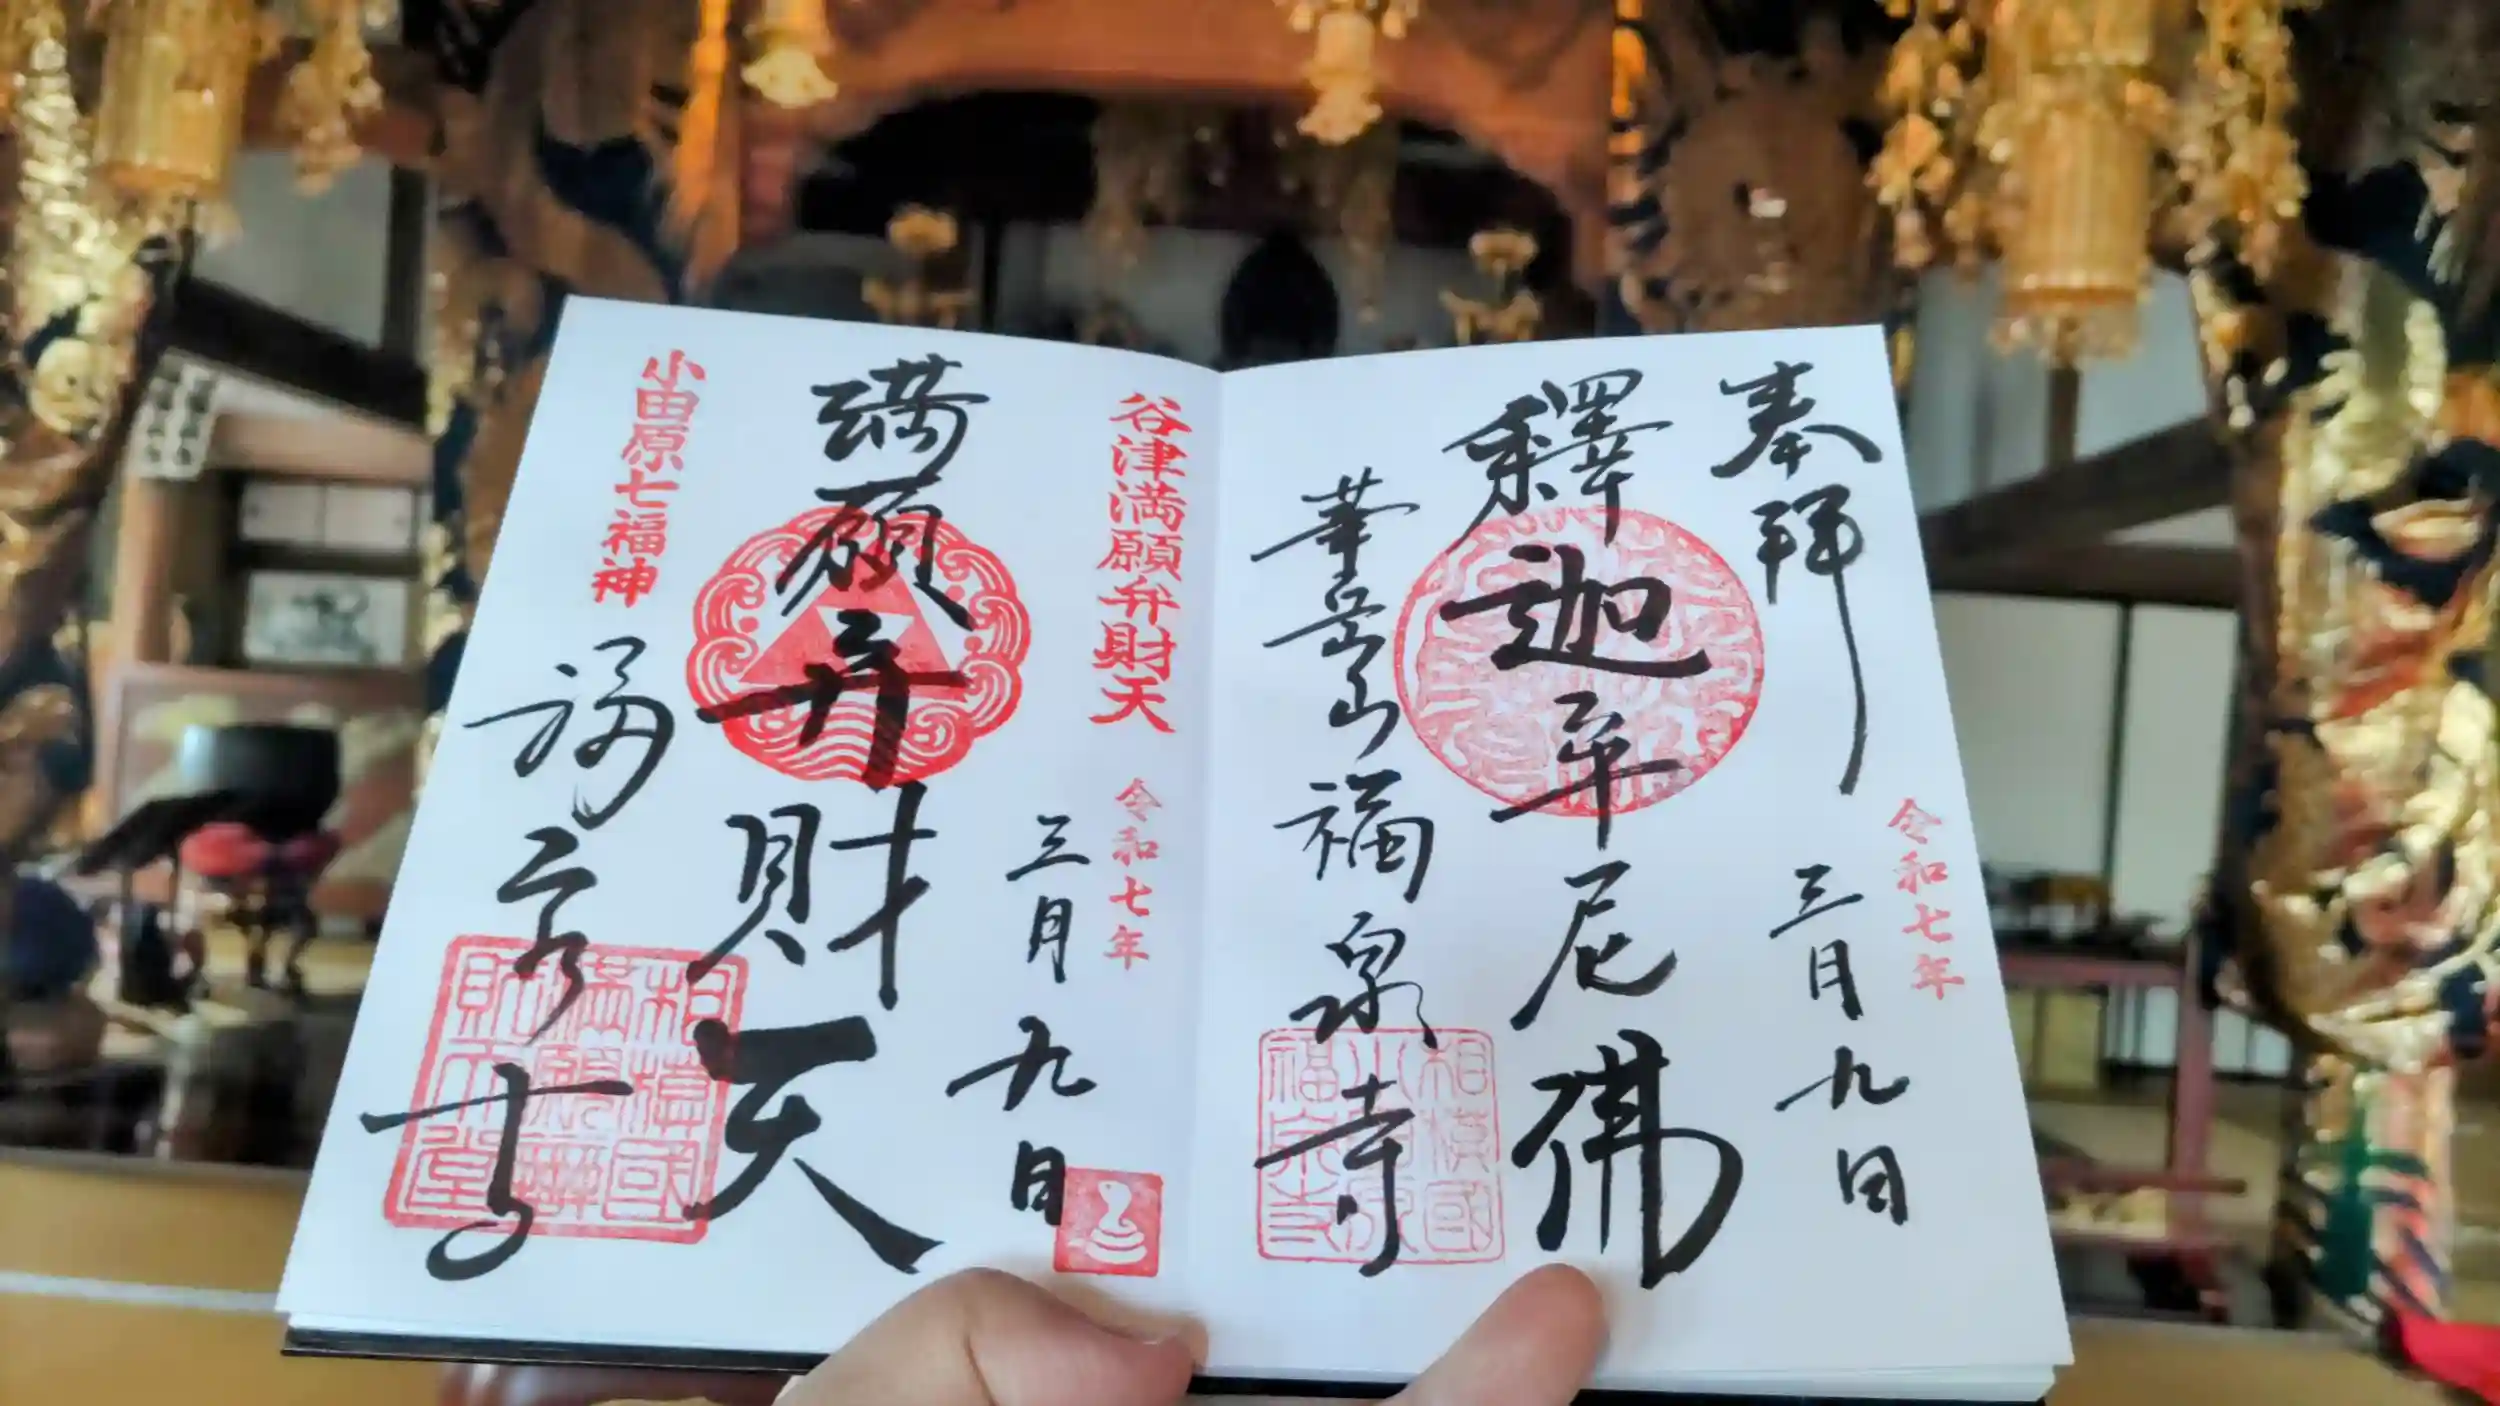 奉拝
令和七年
三月九日
釋迦牟尼佛
華岳山福泉寺
相模國小田原福泉寺
谷津満願弁財天
令和七年
三月九日
満願弁財天
小田原七福神
福泉寺